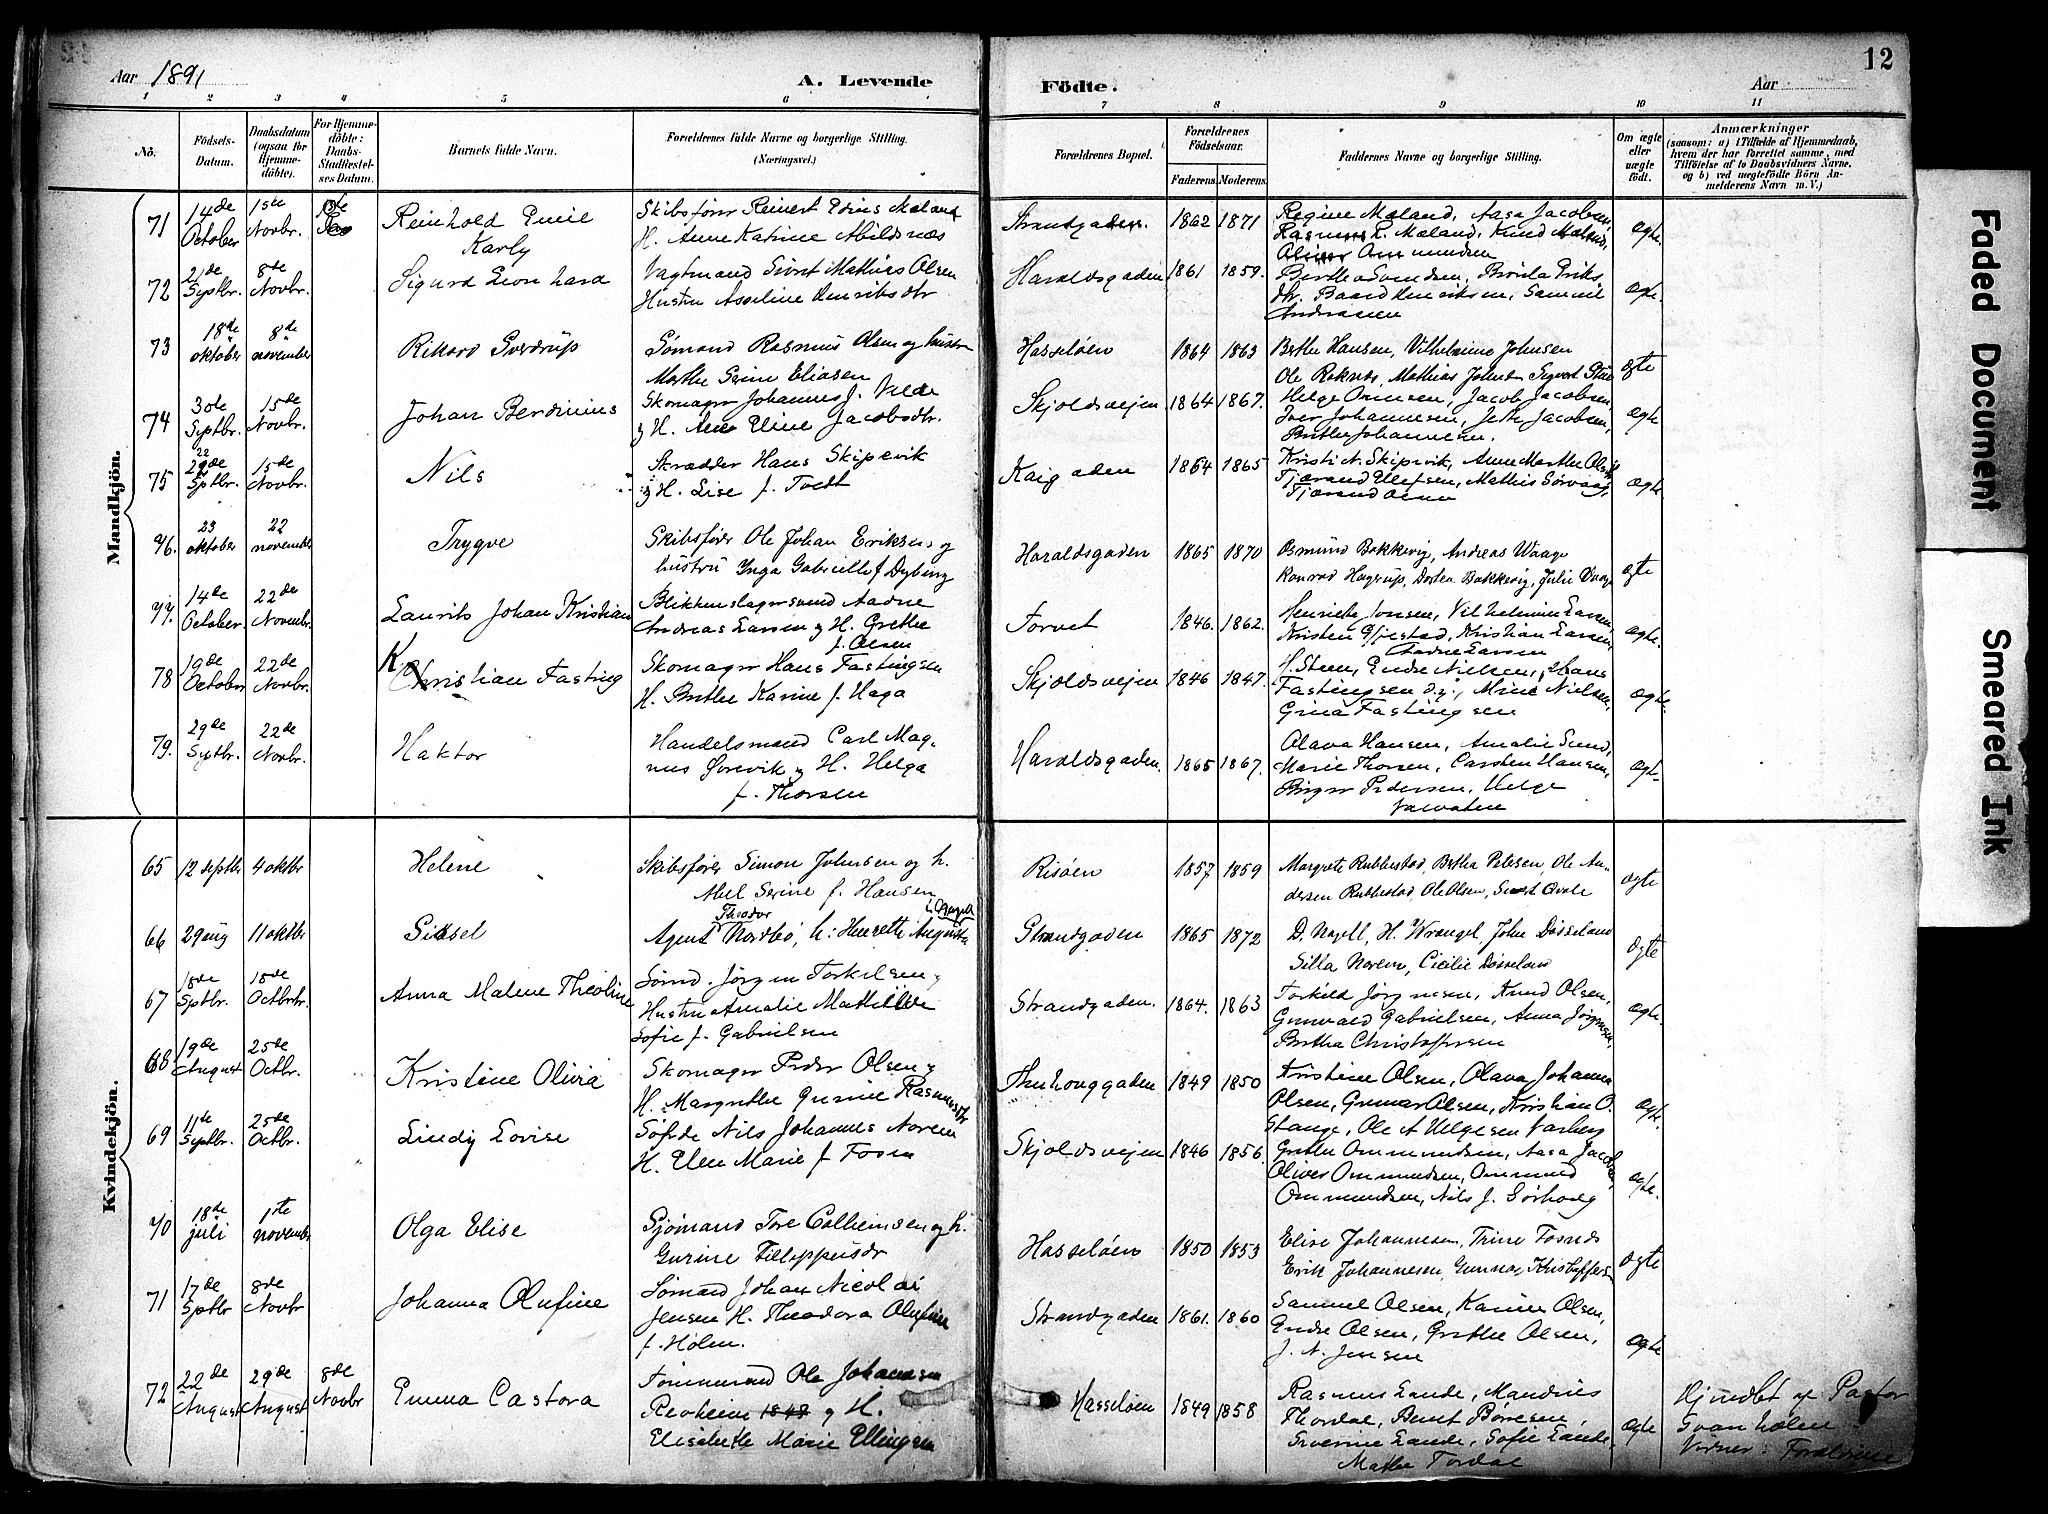 Aar 1891
A. Levende
Födte.
Aar
12
1 2 3 4 5 6 7 8 9 10 11
No.
Födsels-
Datum.
Daabsdatum
(ogsaa för
Hjemme-
döbte).
For Hjemme-
döbte:
Daabs-
Stadfæstel-
ses Datum.
Barnets fulde Navn.
Forældrenes fulde Navne og borgerlige Stilling.
(Næringsvei.)
Forældrenes Bopæl.
Forældrenes
Födselsaar.
Faderens. Moderens.
Faddernes Navne og borgerlige Stilling.
Om ægte
eller
uægte
födt.
Anmærkninger
(saasom: a) i Tilfælde af Hjemmedaab,
hvem der har forrettet samme, med
Tilföielse af to Daabsvidners Navne.
og b) ved uægtefödte Börn An-
melderens Navn m. V.)
Mandkjön.
71 14de October 15de Novbr.
Reinhold Emil
Karly
Skibsfører Reinert Edius Mæland
H. Anne Katrine Abildsnæs
Strandgaden. 1862 1871
Regine Mæland, Aasa Jacobsen,
Rasmus R. Mæland, Knud Mæland,
Ommundsen
ægte.
72 21de Septbr. 8de Novbr.
Sigurd Leonhard
Vagtmand Sivert Mathias Olsen
Hustru Asseline Henriksdtr
Haraldsgaden 1861 1859.
Berthe Svendsen, Brynla Eriks
dtr. Baard Henriksen, Samuel
Andreasen
ægte.
73 18de oktober 8de november
Rikard Sverdrup
Sømand Rasmus Olsen og hustru
Marthe Serine Eliasen
Hasseløen 1864 1863
Berthe Hansen, Vilhelmine Johnsen
Ole Røksnes, Mathias Johnsen
ægte
74 30te Septbr. 15de Novbr.
Johan Berdinius
Skomager Johannes J. Velde
og H. Ane Eline Jacobsdtr.
Skjoldsvejen 1864 1867.
Helge Omensen, Jacob Jacobsen,
Iver Johannesen, Jethe Jacobsen,
Berthe Johannesen.
ægte
75 22 29de Septbr. 15de Novbr.
Nils
Skrædder Hans Skipevik
og H. Lise f. Tvedt
Kaigaden 1864 1865
Kristi N. Skipevik, Anne Marthe Olsen
Tjerand Ellefsen, Mathis Sørvaag,
Tjerand Olsen
ægte
76. 23 oktober 22 november
Trygve
Skibsfører Ole Johan Eriksen og
hustru Inga Gabrielle f Dyberg
Haraldsgaden 1865 1870
Osmund Bakkevig, Andreas Waage
Konrad Hagrup, Dorthea Bakkevig, Julie Waage
ægte
77. 14de October 22de Novembr.
Laurits Johan Kristian
Blikkenslagersvend Aadne
Andreas Larsen og H. Grethe
f. Olsen
Torvet 1846. 1862.
Henriette Jonsen, Vilhelmine Larsen,
Kristen Gjestad, Kristian Larsen,
Aadne Larsen
ægte.
78 19de October 22de Novbr.
K
Christian Fasting
Skomager Hans Fastingsen
H. Berthe Karine f. Haga
Skjoldsvejen 1846 1847.
H. Steen, Endre Nielsen, Hans
Fastingsen d.y., Mine Nielsen,
Grina Fastingsen
ægte.
79. 29de Septbr. 22de Novbr.
Haktor
Handelsmand Carl Mag-
nus Sørevik og H. Helga
f. Thorsen
Haraldsgaden. 1865 1867.
Olava Hansen, Amalie Sund,
Marie Thorsen, Carsten Hansen,
Birger Pedersen, Helge
Vaevaten
ægte.
Kvindekjön.
65 12 septbr 4 oktbr
Helene
Skibsfører Simon Johnsen og h.
Abel Serine f. Hansen
Risøen 1857 1859
Margrete Rubbestad, Bertha Petersen, Ole An-
dersen Rubbestad, Ole Olsen, Sivert Qvale
ægte
66 29 aug 11 oktbr
Sidsel
Theodor
Agent Nordbø, h: Henrette Augusta
Strandgaden 1865 1872
D. Nagell, H. Wrangel, John Døsseland
Silla Noreen, Cicilie Døsseland
ægte
67 18de Septbr. 18de Octbrbr.
Anna Malene Theoline
Sømd. Jörgen Torkelsen og
Hustru Amalie Mathilde
Sofie f. Gabrielsen
Strandgaden. 1864. 1863
Torkild Jörgensen, Knud Olsen,
Gunvald Gabrielsen, Anna Jörgensen,
Bertha Christoffersen
ægte.
68 19de August 25de Octbr.
Kristine Olivia
Skomager Peder Olsen og
H. Margrethe Gurine Rasmusdtr
Thuhouggaden 1849 1850
Kristine Olsen, Olava Johanna
Olsen, Gunnar Olsen, Kristian O.
Stange, Ole A Helgesen Varberg
ægte.
69 11te Septbr. 25de Octbr.
Lindy Lovise
Søfrde Nils Johannes Noreen
H. Elen Marie f Fosen
Skjoldsvejen 1846 1856.
Grethe Ommundsen, Aasa Jacobsen,
Oliver Ommundsen, Ommund
Ommundsen, Nils J. Sørhoug
ægte.
70 18de juli 1ste novembr
Olga Elise
Sjømand Tore Colbeinsen og h.
Gurine Filleppusdr
Hasseløen 1850 1853
Elise Johannesen, Trine Fosnes
Erik Johannesen, Gunnar Kristoffersen
ægte
71 17de Septbr 8de Novbr
Johanna Olufine
Sømand Johan Nicolai
Jensen H. Theodora Olufine
f. Holm.
Strandgaden 1861. 1860
Samuel Olsen, Karine Olsen,
Endre Olsen, Grethe Olsen,
J. N. Jensen
ægte
72 22de August 29de August 8de Novbr
Emma Castora
Tømmermd Ole Johannesen
Revheim 1849 og H.
Elisabeth Marie Ellingsen
Hasseløen 1849 1858
Rasmus Lande, Mandius
Thordal, Bernt Børresen,
Severine Lande, Sofie Lande,
Mathe Tordal
ægte
Hjmdbt af Pastor
Svanholm
Vidner: Forældrene
Faded Document
Smeared Ink